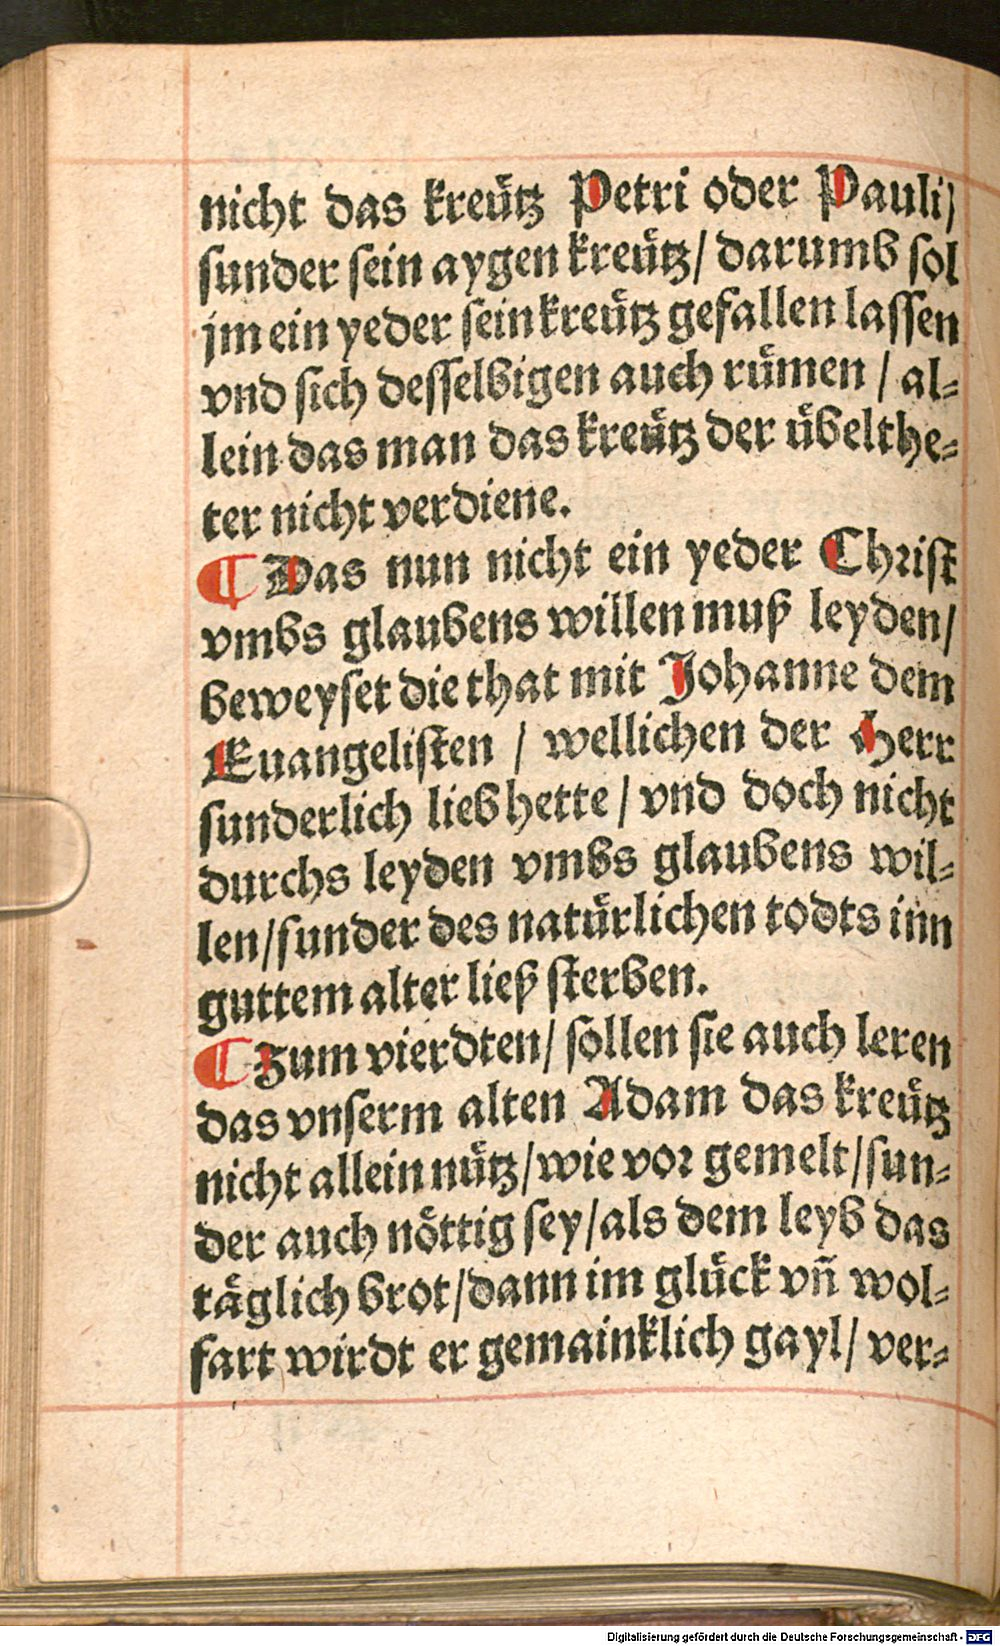 nicht das kreütz Petri oder Pauli/
sunder sein aygen kreütz/ darumb sol
jm ein yeder sein kreütz gefallen lassen
vnd sich desselbigen auch rümen / al⸗
lein das man das kreütz der übelthe⸗
ter nicht verdiene.
¶ Das nun nicht ein yeder Christ
vmbs glaubens willen muß leyden/
beweyset die that mit Johanne dem
Euangelisten / wellichen der Herr
sunderlich lieb hette / vnd doch nicht
durchs leyden vmbs glaubens wil⸗
len/sunder des natürlichen todts inn
guttem alter ließ sterben.
¶ Zum vierdten/ sollen sie auch leren
das vnserm alten Adam das kreütz
nicht allein nütz/wie vor gemelt/sun⸗
der auch nöttig sey/als dem leyb das
täglich brot/dann im glück vñ wol⸗
fart wirdt er gemainklich gayl/ ver⸗
Digitalisierung gefördert durch die Deutsche Forschungsgemeinschaft - DFG